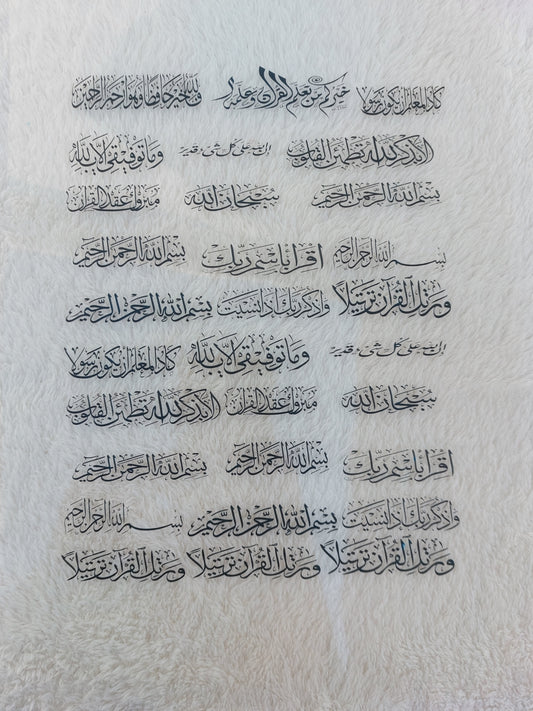 كاد المعلم أن يكون رسولا خيركم من تعلم القرآن وعلمه فالله خير حافظا وهو أرحم الراحمين
ألا بذكر الله تطمئن القلوب إن الله على كل شيء قدير وما توفيقي إلا بالله
بسم الله الرحمن الرحيم سبحان الله مبروك عقد القرآن
بسم الله الرحمن الرحيم اقرأ باسم ربك بسم الله الرحمن الرحيم
ورتل القرآن ترتيلا واذكر ربك إذا نسيت بسم الله الرحمن الرحيم
إن الله على كل شيء قدير وما توفيقي إلا بالله كاد المعلم أن يكون رسولا
سبحان الله مبروك عقد القرآن ألا بذكر الله تطمئن القلوب
اقرأ باسم ربك بسم الله الرحمن الرحيم بسم الله الرحمن الرحيم
واذكر ربك إذا نسيت بسم الله الرحمن الرحيم بسم الله الرحمن الرحيم
ورتل القرآن ترتيلا ورتل القرآن ترتيلا ورتل القرآن ترتيلا